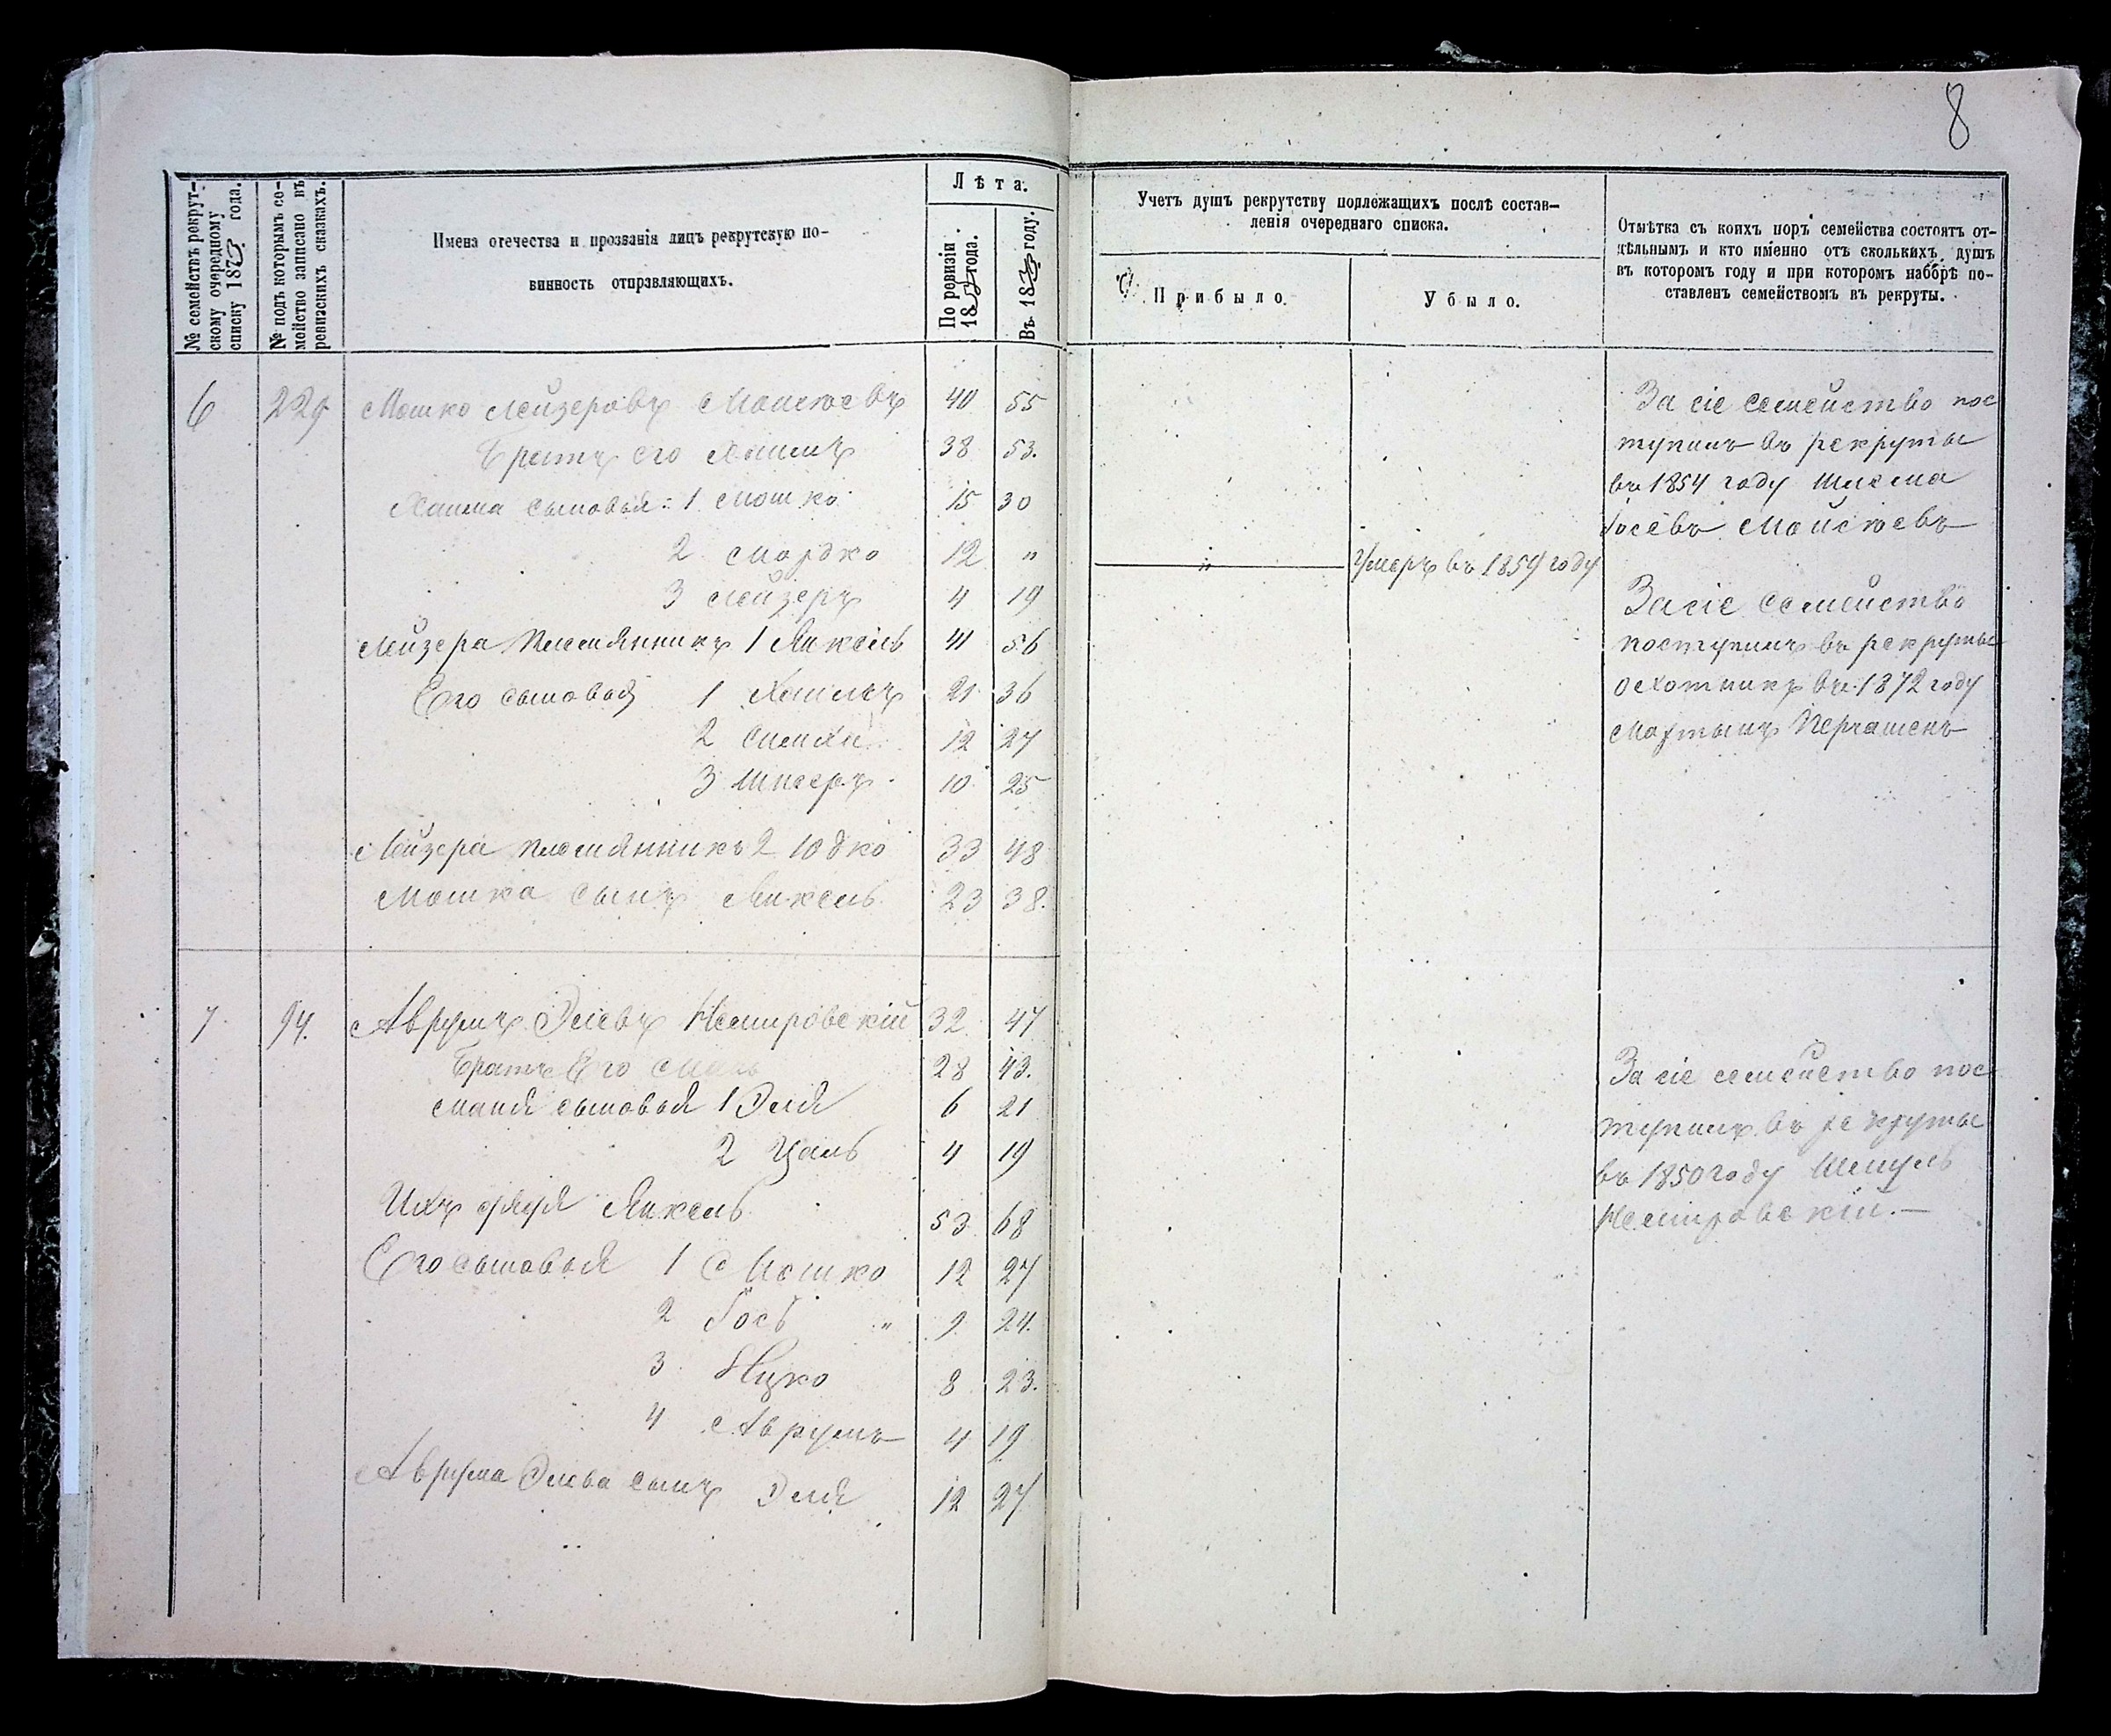 8
№ семействъ рекрут-
скому очередному
списку 1873 года.
№ подъ которымъ се-
мейство записано въ
ревизскихъ сказкахъ.
Имена отечества и прозванія лицъ рекрутскую по-
винность отправляющихъ.
Лѣта.
По ревизіи
1858 года.
Въ 1873 году.
Учетъ душъ рекрутству подлежащихъ послѣ состав-
ленія очереднаго списка.
Прибыло.
Убыло.
Отмѣтка съ коихъ поръ семейства состоятъ от-
дѣльнымъ и кто именно отъ сколькихъ душъ
въ которомъ году и при которомъ наборѣ по-
ставленъ семействомъ въ рекруты.
6 229 Мошко Лейзеровъ Моисеевъ 40 55
Братъ его Хаимъ 38 53.
Хаима сыновья: 1 Мошко 15 30
2 Мордко 12 " " Умеръ въ 1859 году
3 Лейзеръ 4 19
Лейзера племянникъ 1 Янкель 41 56
Его сыновья 1 21 36
2 Симха 12 27
3 10 25
Лейзера племянникъ 2 Юдко 33 48
Мошка сынъ Янкель 23 38.
За сіе семейство пос
тупилъ въ рекруты
въ 1854 году
Іосевъ
За сіе семейство
поступилъ въ рекруты
охотникъ въ 1872 году
Мартынъ
7 94. Аврумъ Элевъ Немировскій 32 47
Братъ Его 28 43.
сыновья 1 Эля 6 21
2 4 19
Ихъ дядя Янкель 53 68
Его сыновья 1 Мошко 12 27
2 Іось " 9 24.
3 Ицко 8 23.
4 Аврумъ 4 19
Аврума Элева сынъ Эля 12 27
За сіе семейство пос
тупилъ въ рекруты
въ 1850 году Шмуль
Немировскій.—